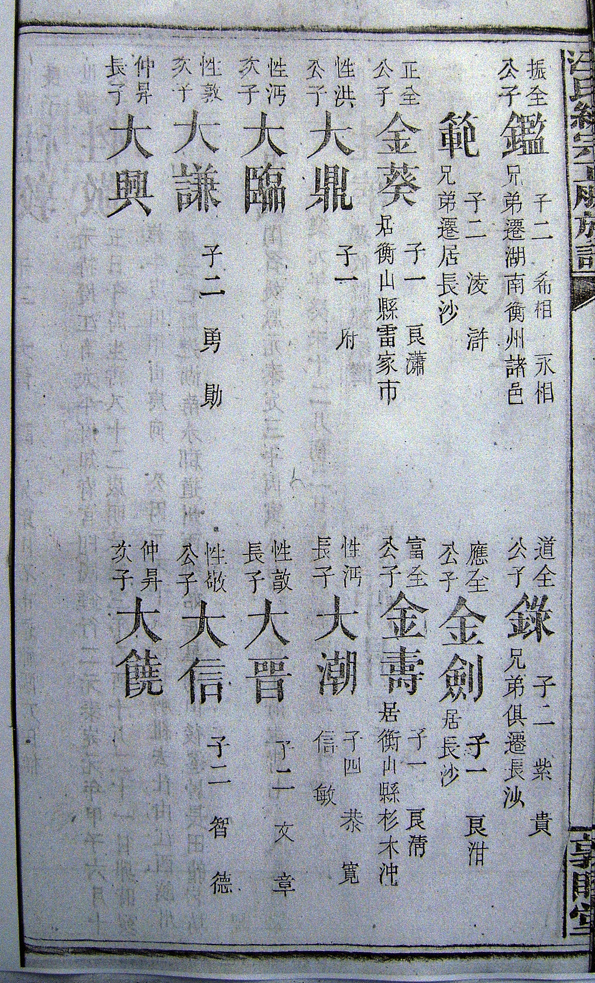 敦睦堂
振全
公子
鑑
子二 希相 永相
兄弟遷湖南衡州諸邑
範
子二 淩 滸
兄弟遷居長沙
正全
公子
金葵
子一 良瀟
居衡山縣雷家市
性洪
公子
大鼎
子一 附
性沔
次子
大臨
性敦
次子
大謙
子二 勇 勛
仲昇
長子
大興
道全
公子
錄
子二 紫 貴
兄弟俱遷長沙
應全
公子
金劍
子一 良泔
居長沙
富全
公子
金壽
子一 良清
居衡山縣杉木沖
性沔
長子
大潮
子四 恭 寬
信 敏
性敦
長子
大晋
子二 文 章
性敬
公子
大信
子二 智 德
仲昇
次子
大饒